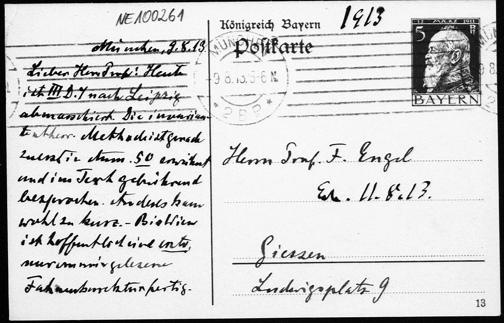 NE100261
1913
Königreich Bayern
Postkarte
12. MÄRZ 1911
5
BAYERN
MÜNCHEN
9.8.13. 5-6 N.
* 2 B P *
München, 9.8.13
Lieber Herr Prof.! Heute
ist III D. 7 nach Leipzig
abmarschiert. Die invarian-
tentheor. Methode ist gerade
zuerst in Anm. 50 erwähnt
und im Text gebührend
besprochen. Anders kam
wohl zu kurz. – Bis Wien
ist hoffentlich eine
von mir gelesene
Fahnenkorrektur fertig.
Herrn Prof. F. Engel
Erh. 11.8.13.
Giessen
Ludwigsplatz 9
13